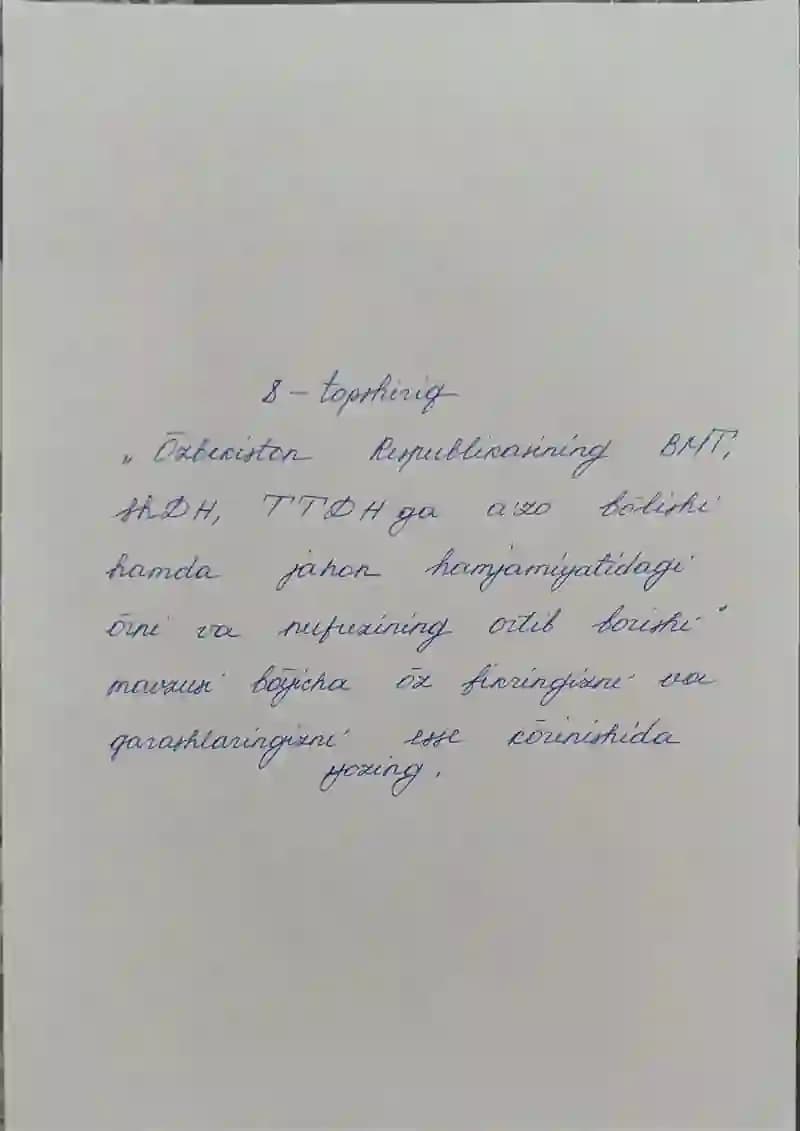 8 - topshiriq
„Ōzbekiston Respublikasining BMT,
ShDH, TTDH ga a'zo bōlishi
hamda jahon hamjamiyatidagi
ōrni va nufuzining ortib borishi"
mavzusi bōyicha ōz fikringizni va
qarashlaringizni esse kōrinishida
yozing.